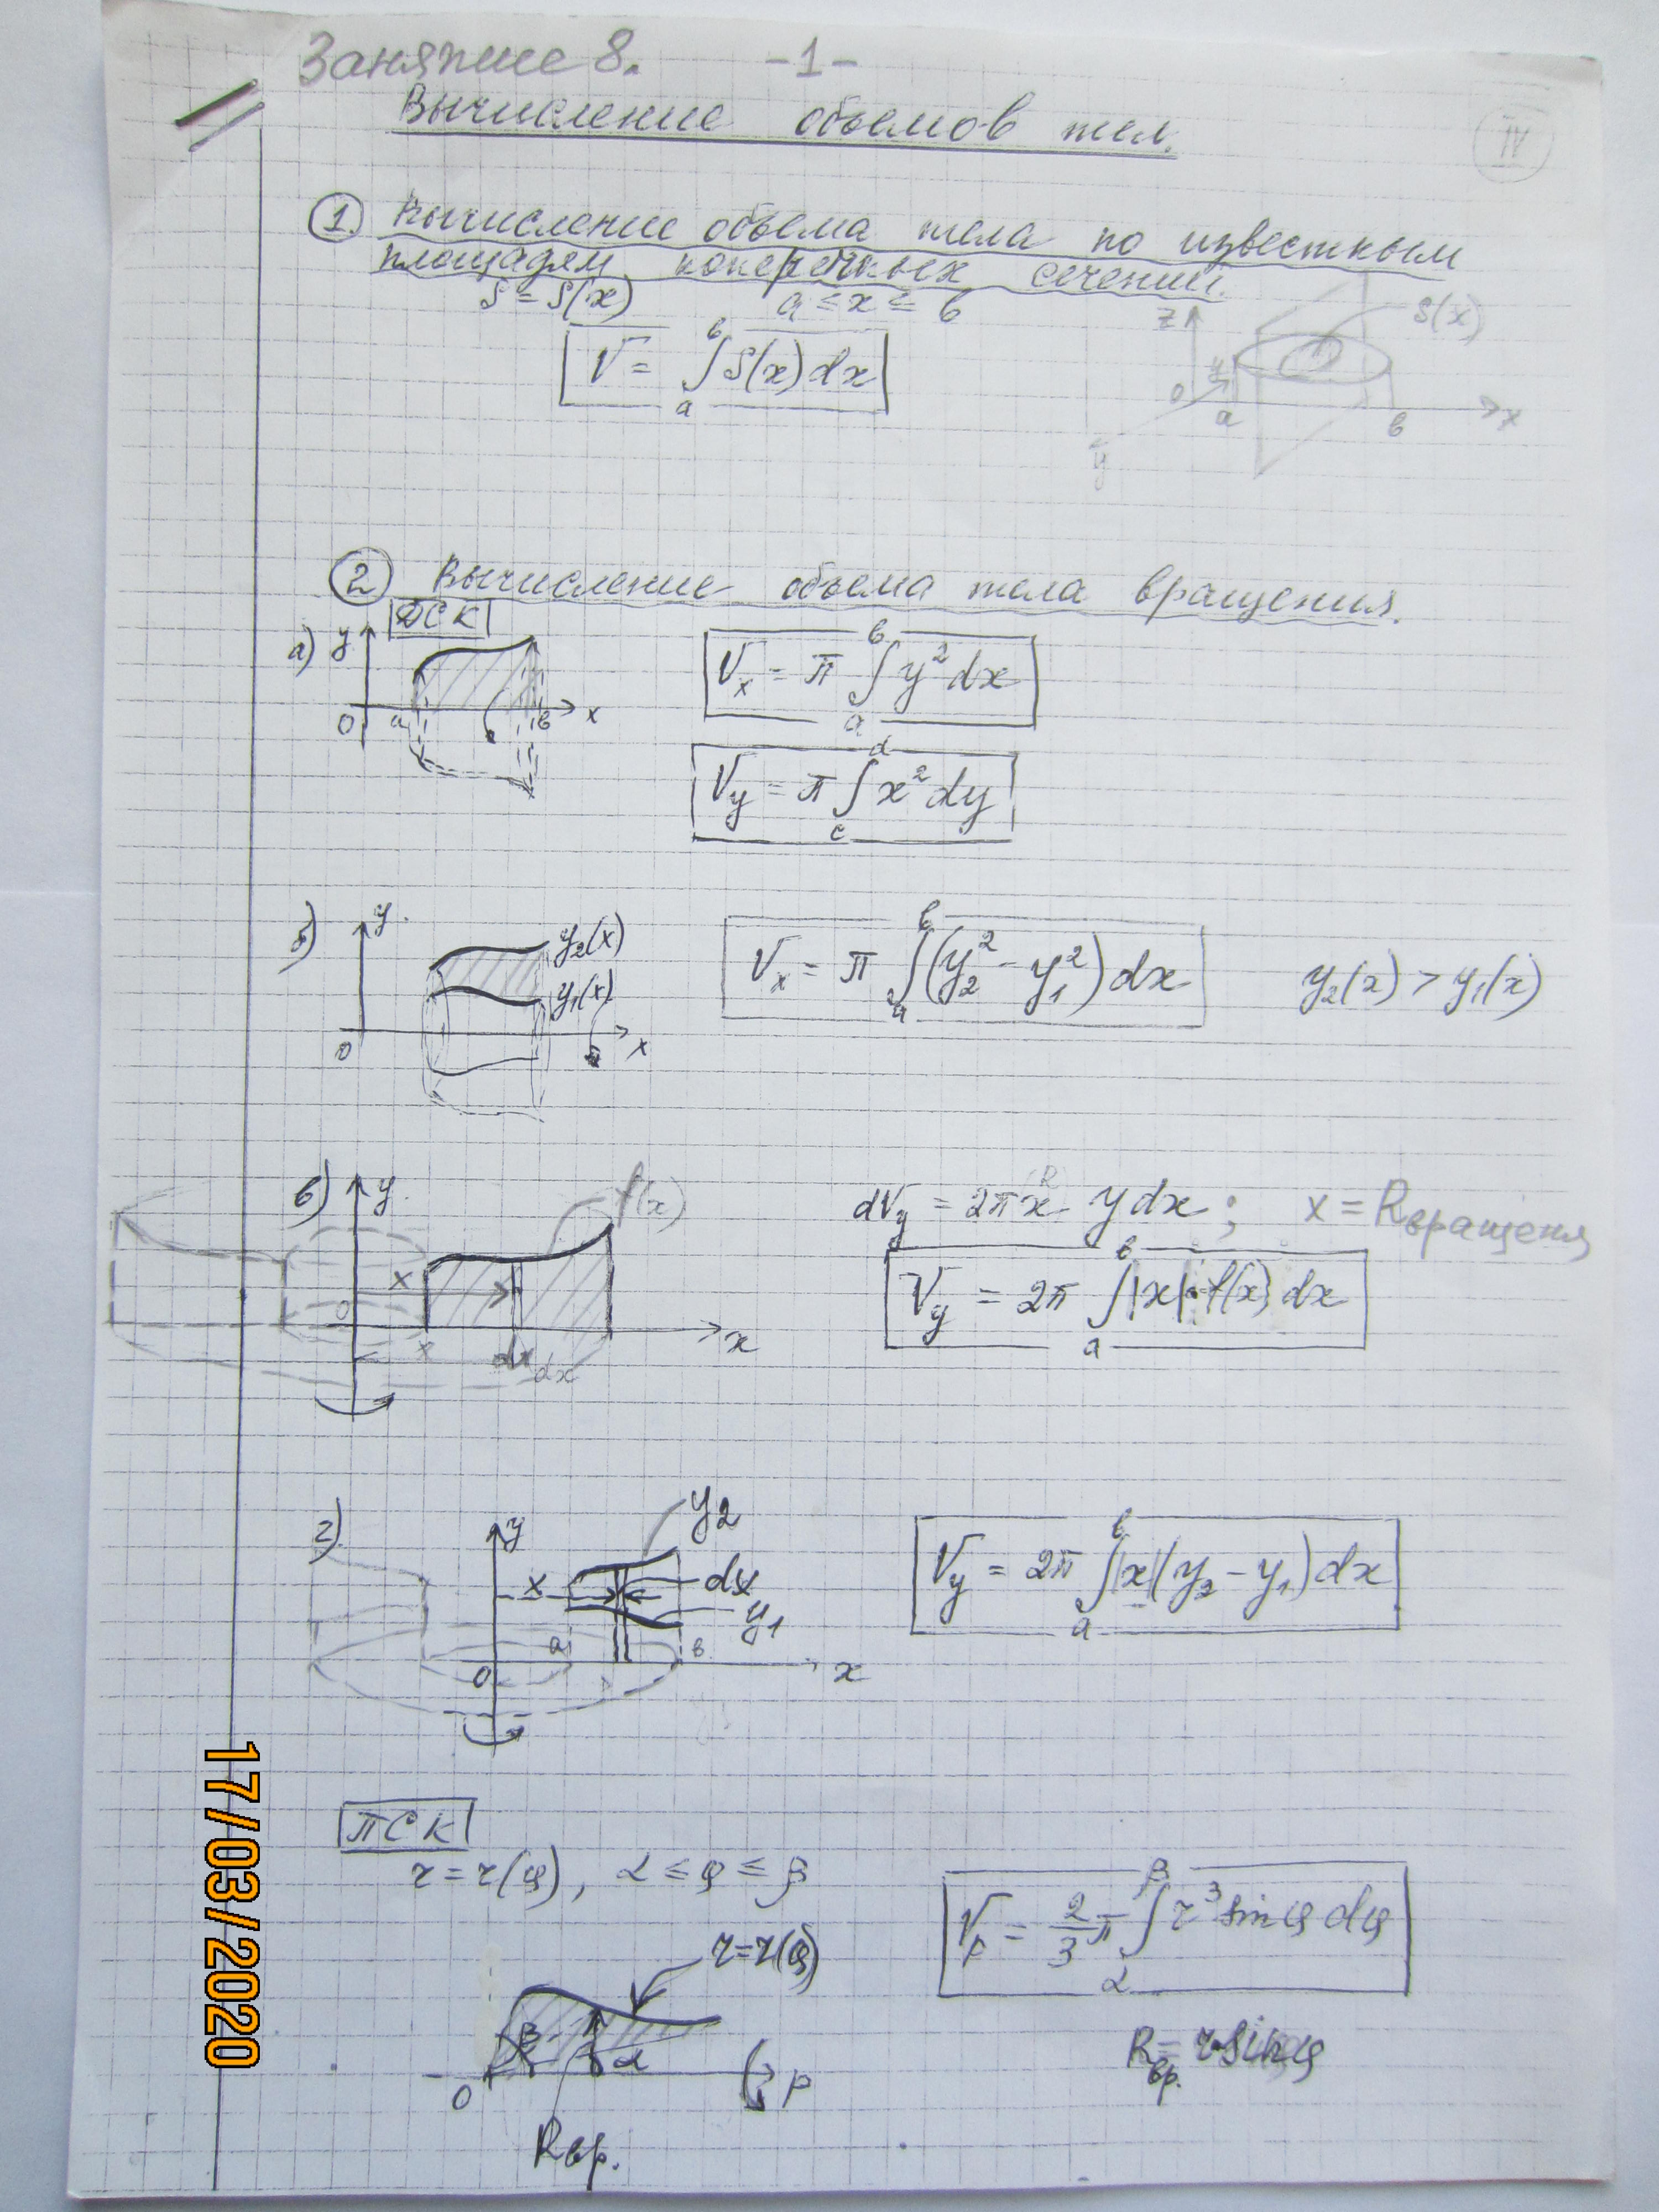 Занятие 8. -1-
Вычисление объемов тел.
IV
1. Вычисление объема тела по известным
площадям поперечных сечений.
S = S(x) a ≤ x ≤ b
V = ∫_a^b S(x) dx
z S(x)
0 a b x
y
2 Вычисление объема тела вращения.
ДСК
а) y
0 a b x
V_x = π ∫_a^b y² dx
V_y = π ∫_c^d x² dy
б) y
y₂(x)
y₁(x)
0 x
V_x = π ∫_a^b (y₂² - y₁²) dx y₂(x) > y₁(x)
в) y f(x)
x
0 x dx dx x
dV_y = 2π x y dx ; x = R вращения
V_y = 2π ∫_a^b |x| · f(x) dx
г) y y₂
x dx
y₁
a b
0 x
V_y = 2π ∫_a^b |x| (y₂ - y₁) dx
ПСК
r = r(φ), α ≤ φ ≤ β
V_p = 2/3 π ∫_α^β r³ sin φ dφ
r = r(φ)
β α
0 p
R вр. = r·sin φ
R вр.
17/03/2020